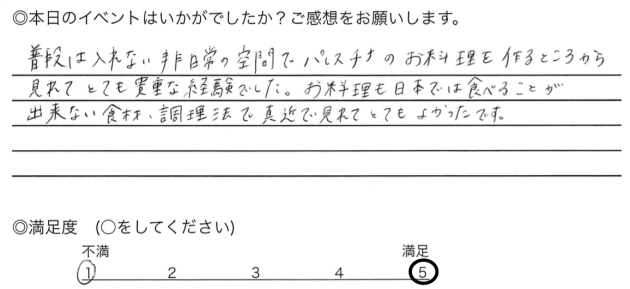 ◎本日のイベントはいかがでしたか？ご感想をお願いします。
普段は入れない非日常の空間でパレスチナのお料理を作るところから
見れてとても貴重な経験でした。お料理も日本では食べることが
出来ない食材、調理法で真近で見れてとてもよかったです。
◎満足度 (〇をしてください)
不満 満足
1 2 3 4 5